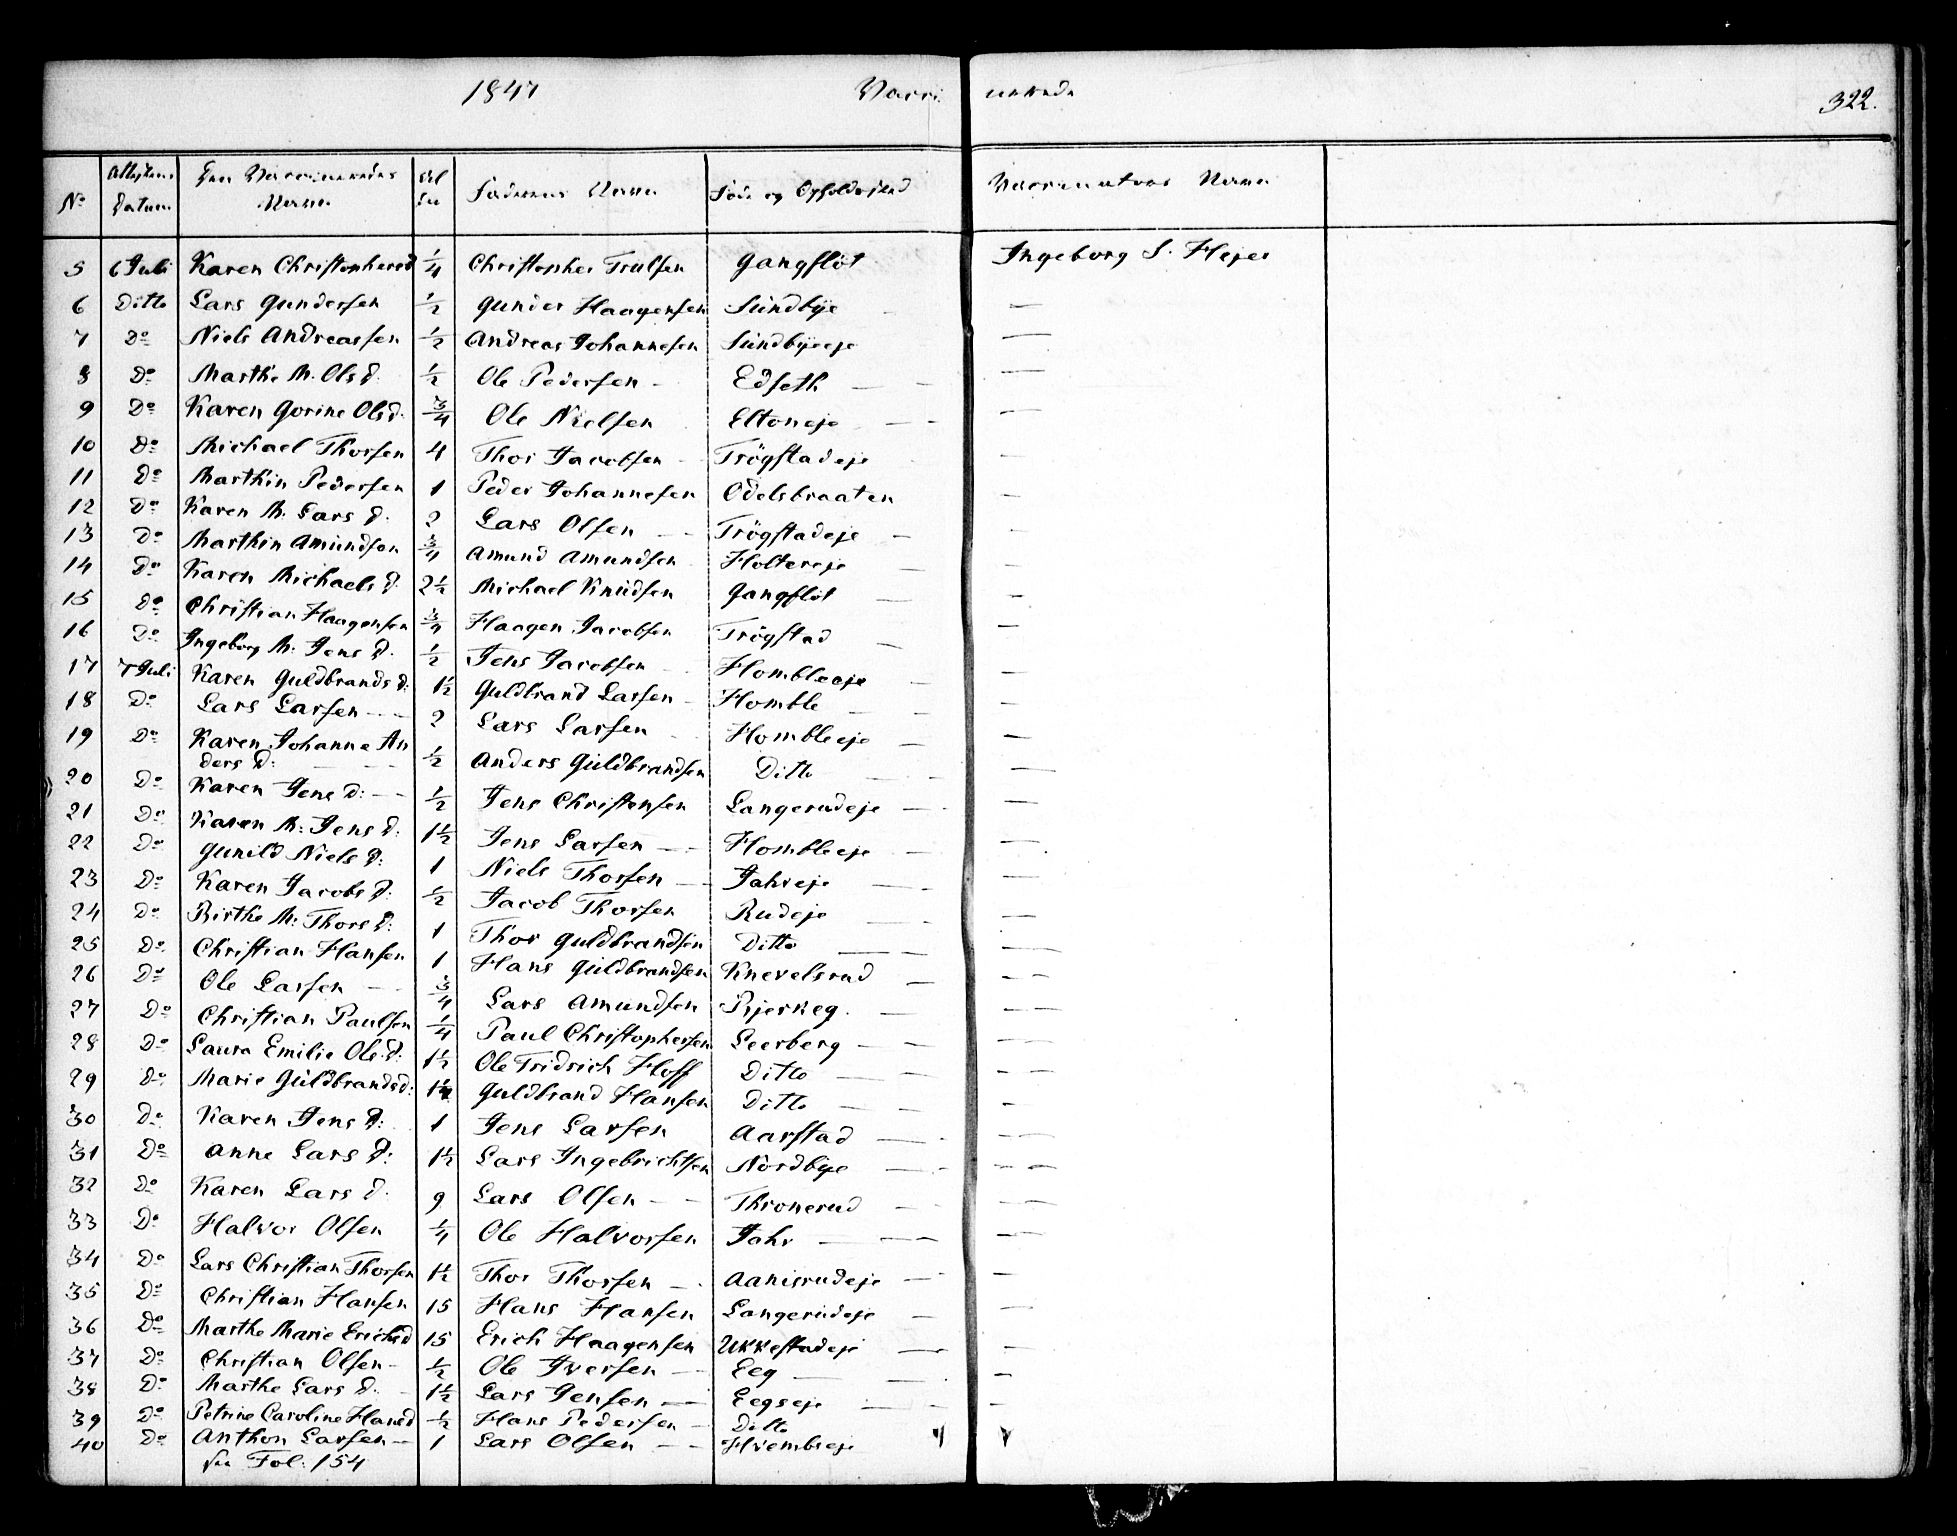 1847 Vacci nerede 322.
No Attestens Datum Den Vaccineredes Navn Al der Faderens Navn Føde og Opholdssted Vaccinateurs Navn
5 6 Juli Karen Christophersd 1/4 Christopher Trulsen Gangflöt Ingeborg S. Hejer
6 Ditto Lars Gundersen 1/2 Gunder Haagensen Sündbÿe —
7 Do Niels Andreassen 1/2 Andreas Johannesen Sündbÿeeje —
8 Do Marthe M. Ols d. 1/2 Ole Pedersen - Edseth —
9 Do Karen Gorine Olsd: 3/4 Ole Nielsen Eltoneje —
10 Do Michael Thorsen 4 Thor Jacobsen Trögstadeje —
11 Do Marthin Pedersen 1 Peder Johannesen Odelsbraaten —
12 Do Karen M. Lars d. 2 Lars Olsen — Trögstadeje —
13 Do Marthin Amündsen 3/4 Amund Amundsen Holtereje —
14 Do Karen Michaels d. 2 1/2 Michael Knüdsen Gangflöt —
15 Do Christian Haagensen 3/4 Haagen Jacobsen Trögstad —
16 Do Ingeborg M. Jens d. 1/2 Jens Jacobsen Hombleeje —
17 7 Juli Karen Guldbrands d: 1 1/2 Guldbrand Larsen - Homble —
18 Do Lars Larsen - - 2 Lars Larsen Hombleeje —
19 Do Karen Johanne An
ders d: 1/2 Anders Güldbrandsen Ditto —
20 Do Karen Jens d: - - 1/2 Jens Christensen Langerudeje —
21 Do Karen M: Jens d: 1 1/2 Jens Larsen — Hombleeje —
22 Do Gunild Niels d: 1 Niels Thorsen — Jahreje —
23 Do Karen Jacobs d: 1/2 Jacob Thorsen Rudeje —
24 Do Birthe M: Thors d: 1 Thor Guldbrandsen Ditto —
25 Do Christian Hansen 1 Hans Güldbrandsen Knevelsrud —
26 Do Ole Larsen - - 3/4 Lars Amundsen Bjerkeg. —
27 Do Christian Paulsen 1/4 Paul Christophersen Leerberg —
28 Do Laura Emilie Ols. d: 1 1/2 Ole Fridrich Hoff Ditto —
29 Do Marie Güldbrandsd: 1 1/2 Guldbrand Hansen Ditto —
30 Do Karen Jens d: 1 Jens Larsen Aarstad —
31 Do Anne Lars d: 1 1/2 Lars Ingebrichtsen Nordbÿe —
32 Do Karen Lars d. 9 Lars Olsen — Thronerud —
33 Do Halvor Olsen 1/4 Ole Halvorsen Jahr —
34 Do Lars Christian Thorsen 1 1/2 Thor Thorsen — Aanisrudeje —
35 Do Christian Hansen 15 Hans Hansen Langerüdeje —
36 Do Marthe Marie Erichsd 15 Erich Haagensen Ukkestadeje —
37 Do Christian Olsen - 1/2 Ole Iversen — Eeg —
38 Do Marthe Lars d. 1 1/2 Lars Jensen — Eegseje —
39 Do Petrine Caroline Hansd 1/2 Hans Pedersen - Ditto —
40 Do Anthon Larsen - 1 Lars Olsen — Hvembeje "
See Fol: 154